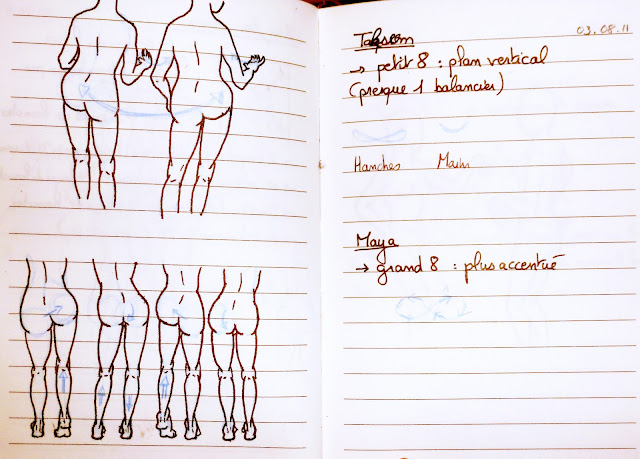 03.08.11
Taqsim
→ petit 8 : plan vertical
(presque 1 balancier)
Hanches Main
Maya
→ grand 8 : plus accentué